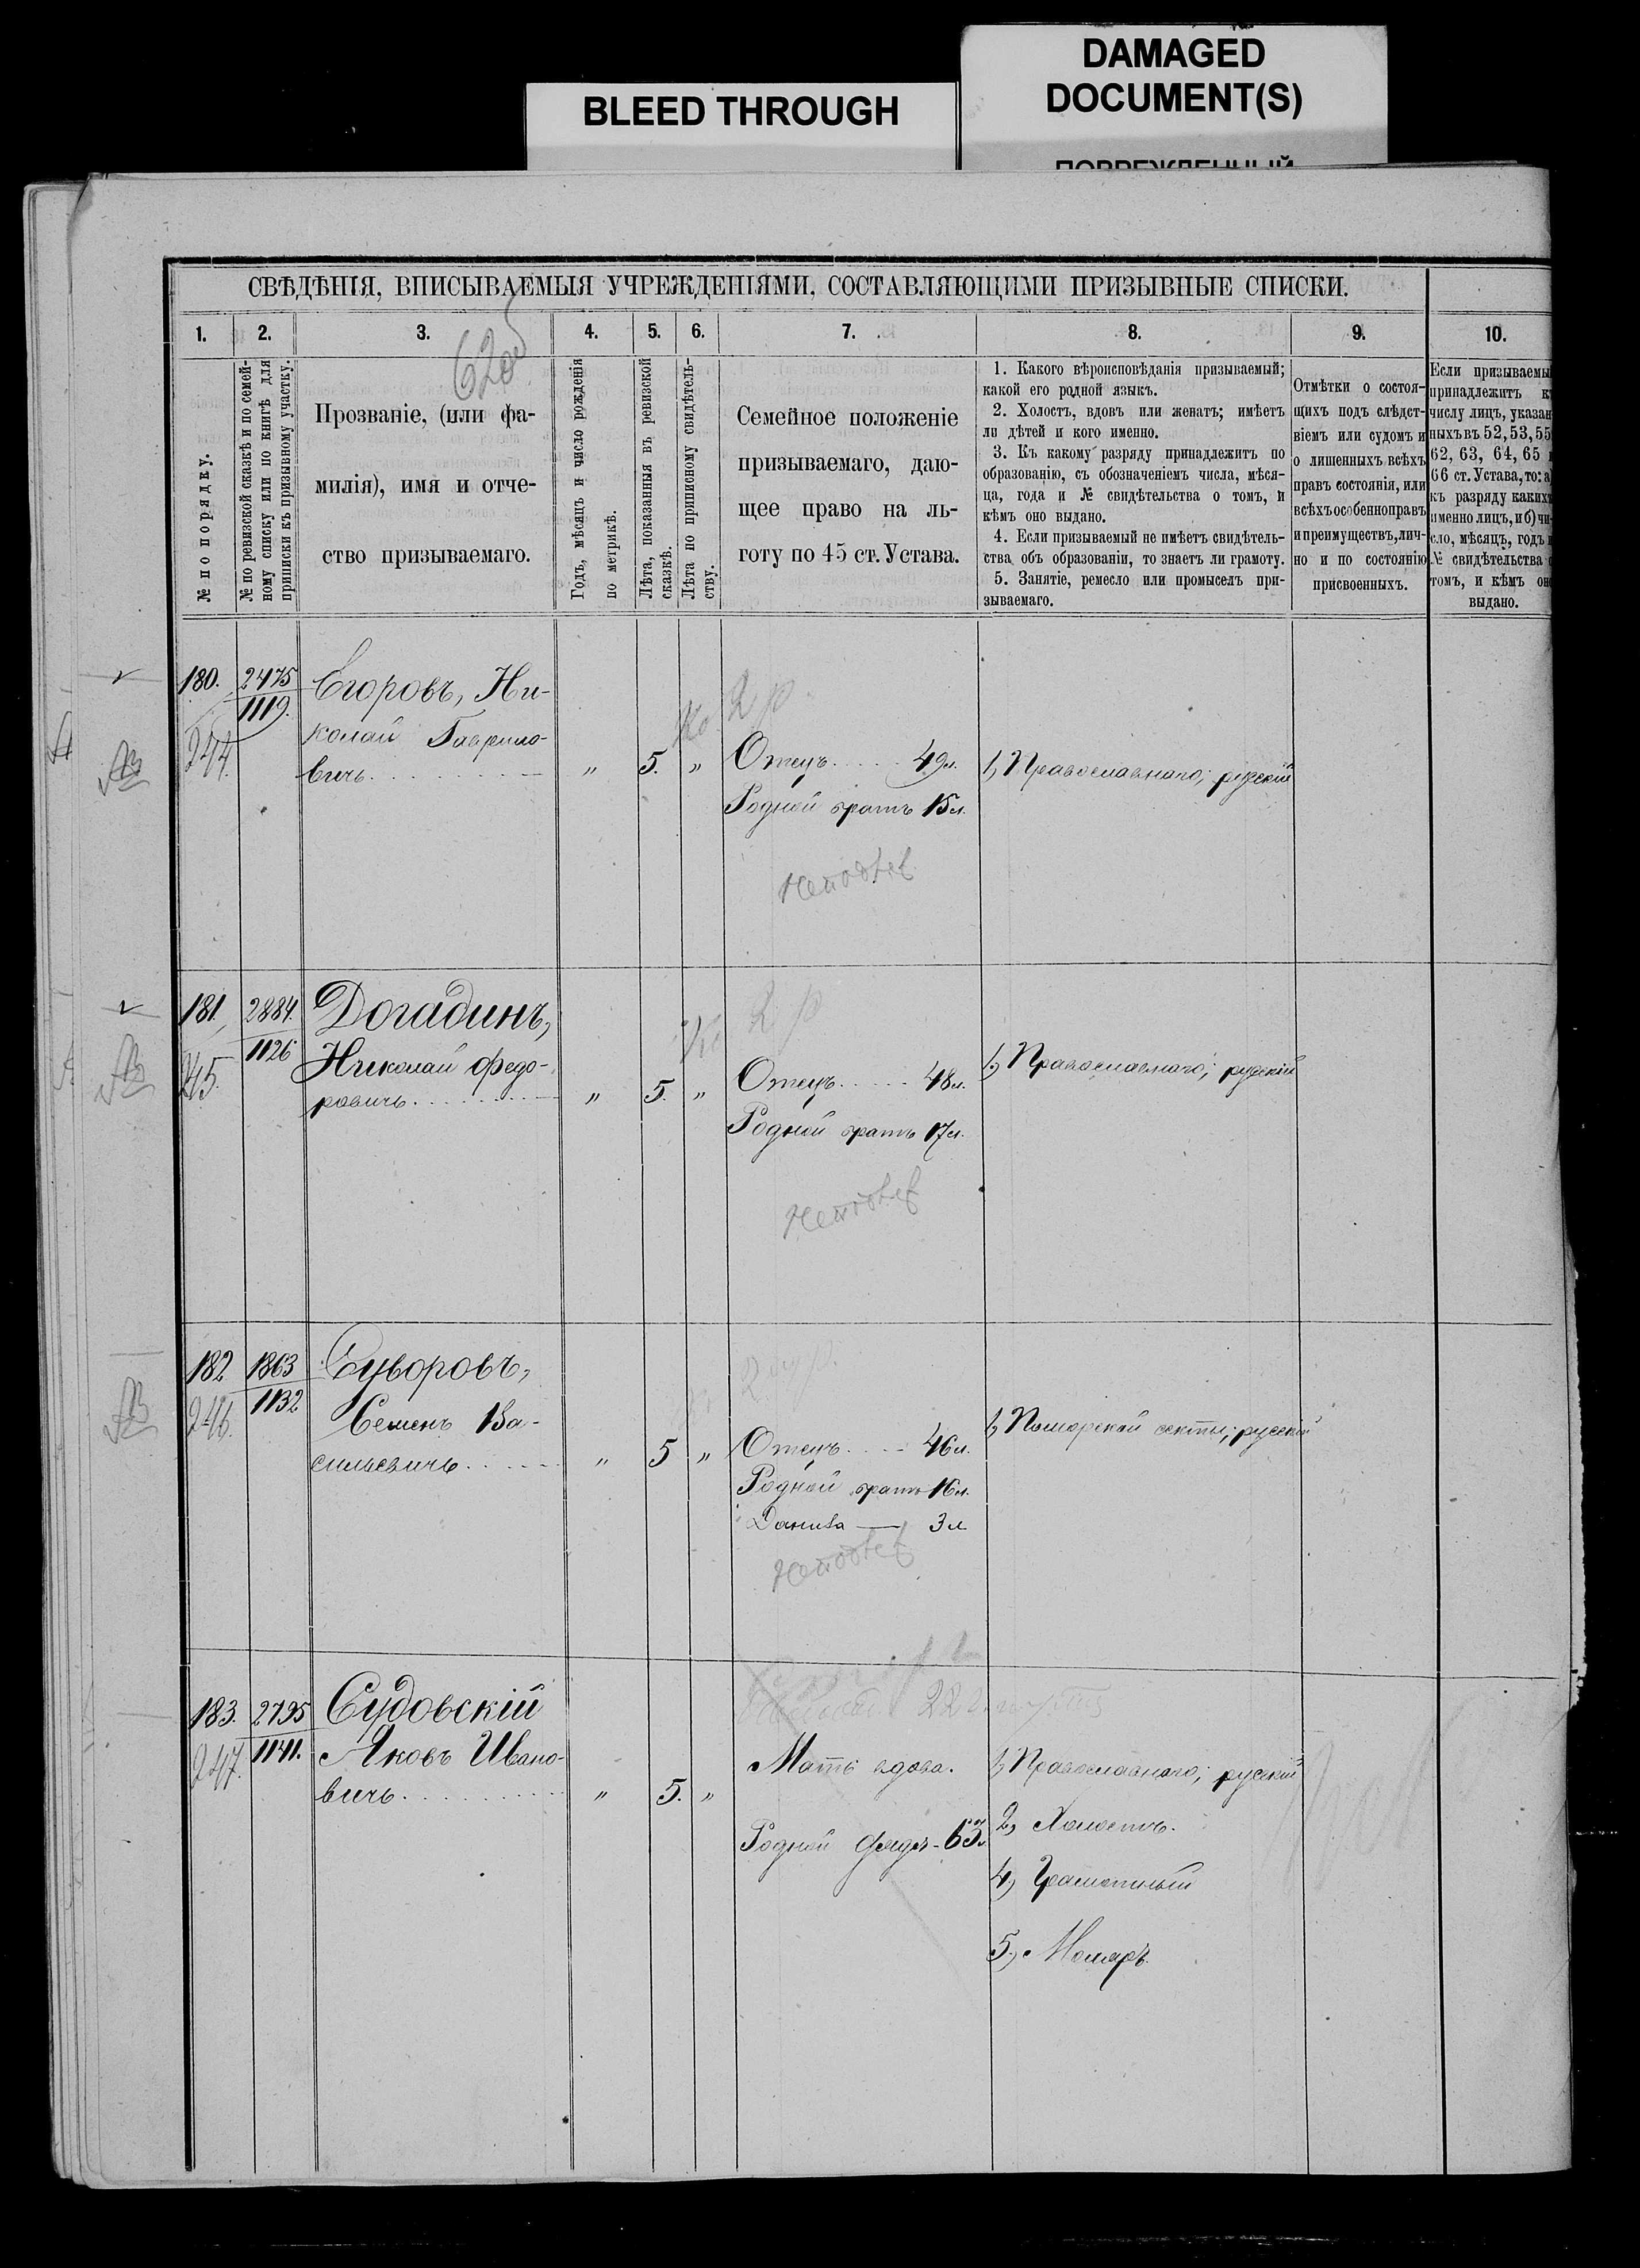 BLEED THROUGH
DAMAGED
DOCUMENT(S)
ПОВРЕЖДЕННЫЙ
СВѢДѢНІЯ, ВПИСЫВАЕМЫЯ УЧРЕЖДЕНІЯМИ, СОСТАВЛЯЮЩИМИ ПРИЗЫВНЫЕ СПИСКИ.
1.
2.
3.
4.
5.
6.
7.
8.
9.
10.
№ по порядку.
№ по ревизской сказкѣ и по семей-
ному списку или по книгѣ для
приписки къ призывному участку.
Прозваніе, (или фа-
милія), имя и отче-
ство призываемаго.
Годъ, мѣсяцъ и число рожденія
по метрикѣ.
Лѣта, показанныя въ ревизской
сказкѣ.
Лѣта по приписному свидѣтель-
ству.
Семейное положеніе
призываемаго, даю-
щее право на ль-
готу по 45 ст. Устава.
1. Какого вѣроисповѣданія призываемый;
какой его родной языкъ.
2. Холостъ, вдовъ или женатъ; имѣетъ
ли дѣтей и кого именно.
3. Къ какому разряду принадлежитъ по
образованію, съ обозначеніемъ числа, мѣся-
ца, года и № свидѣтельства о томъ, и
кѣмъ оно выдано.
4. Если призываемый не имѣетъ свидѣтель-
ства объ образованіи, то знаетъ ли грамоту.
5. Занятіе, ремесло или промыселъ при-
зываемаго.
Отмѣтки о состоя-
щихъ подъ слѣдст-
віемъ или судомъ и
о лишенныхъ всѣхъ
правъ состоянія, или
всѣхъ особенно правъ
и преимуществъ, лич-
но и по состоянію
присвоенныхъ.
Если призываемы
принадлежитъ к
числу лицъ, указан
ныхъ въ 52, 53, 55
62, 63, 64, 65 и
66 ст. Устава, то: а)
къ разряду какихъ
именно лицъ, и б) чи-
сло, мѣсяцъ, годъ и
№ свидѣтельства о
томъ, и кѣмъ оно
выдано.
180.
2475
1119.
244.
Егоровъ, Ни-
колай Гаврило-
вичъ
"
5.
"
2 р
Отецъ 49 л.
Родной братъ 15 л.
1, Православнаго; русскій
181.
2884.
1126
245.
Догадинъ,
Николай Федо-
ровичъ
"
5.
"
2 р
Отецъ 48 л.
Родной братъ 17 л.
1, Православнаго; русскій
182
1863
1132
246.
Суворовъ,
Семенъ Ва-
сильевичъ
"
5
"
Отецъ 46 л.
Родной братъ 16 л.
Данила — 3 л
1, Поморской секты; русскій
183.
2795
1141.
247.
Судовскій
Яковъ Ивано-
вичъ
"
5.
"
Мать вдова.
Родной дядя - 63 л.
1, Православнаго; русскій
2, Холостъ.
4, Грамотный
5, Маляръ.